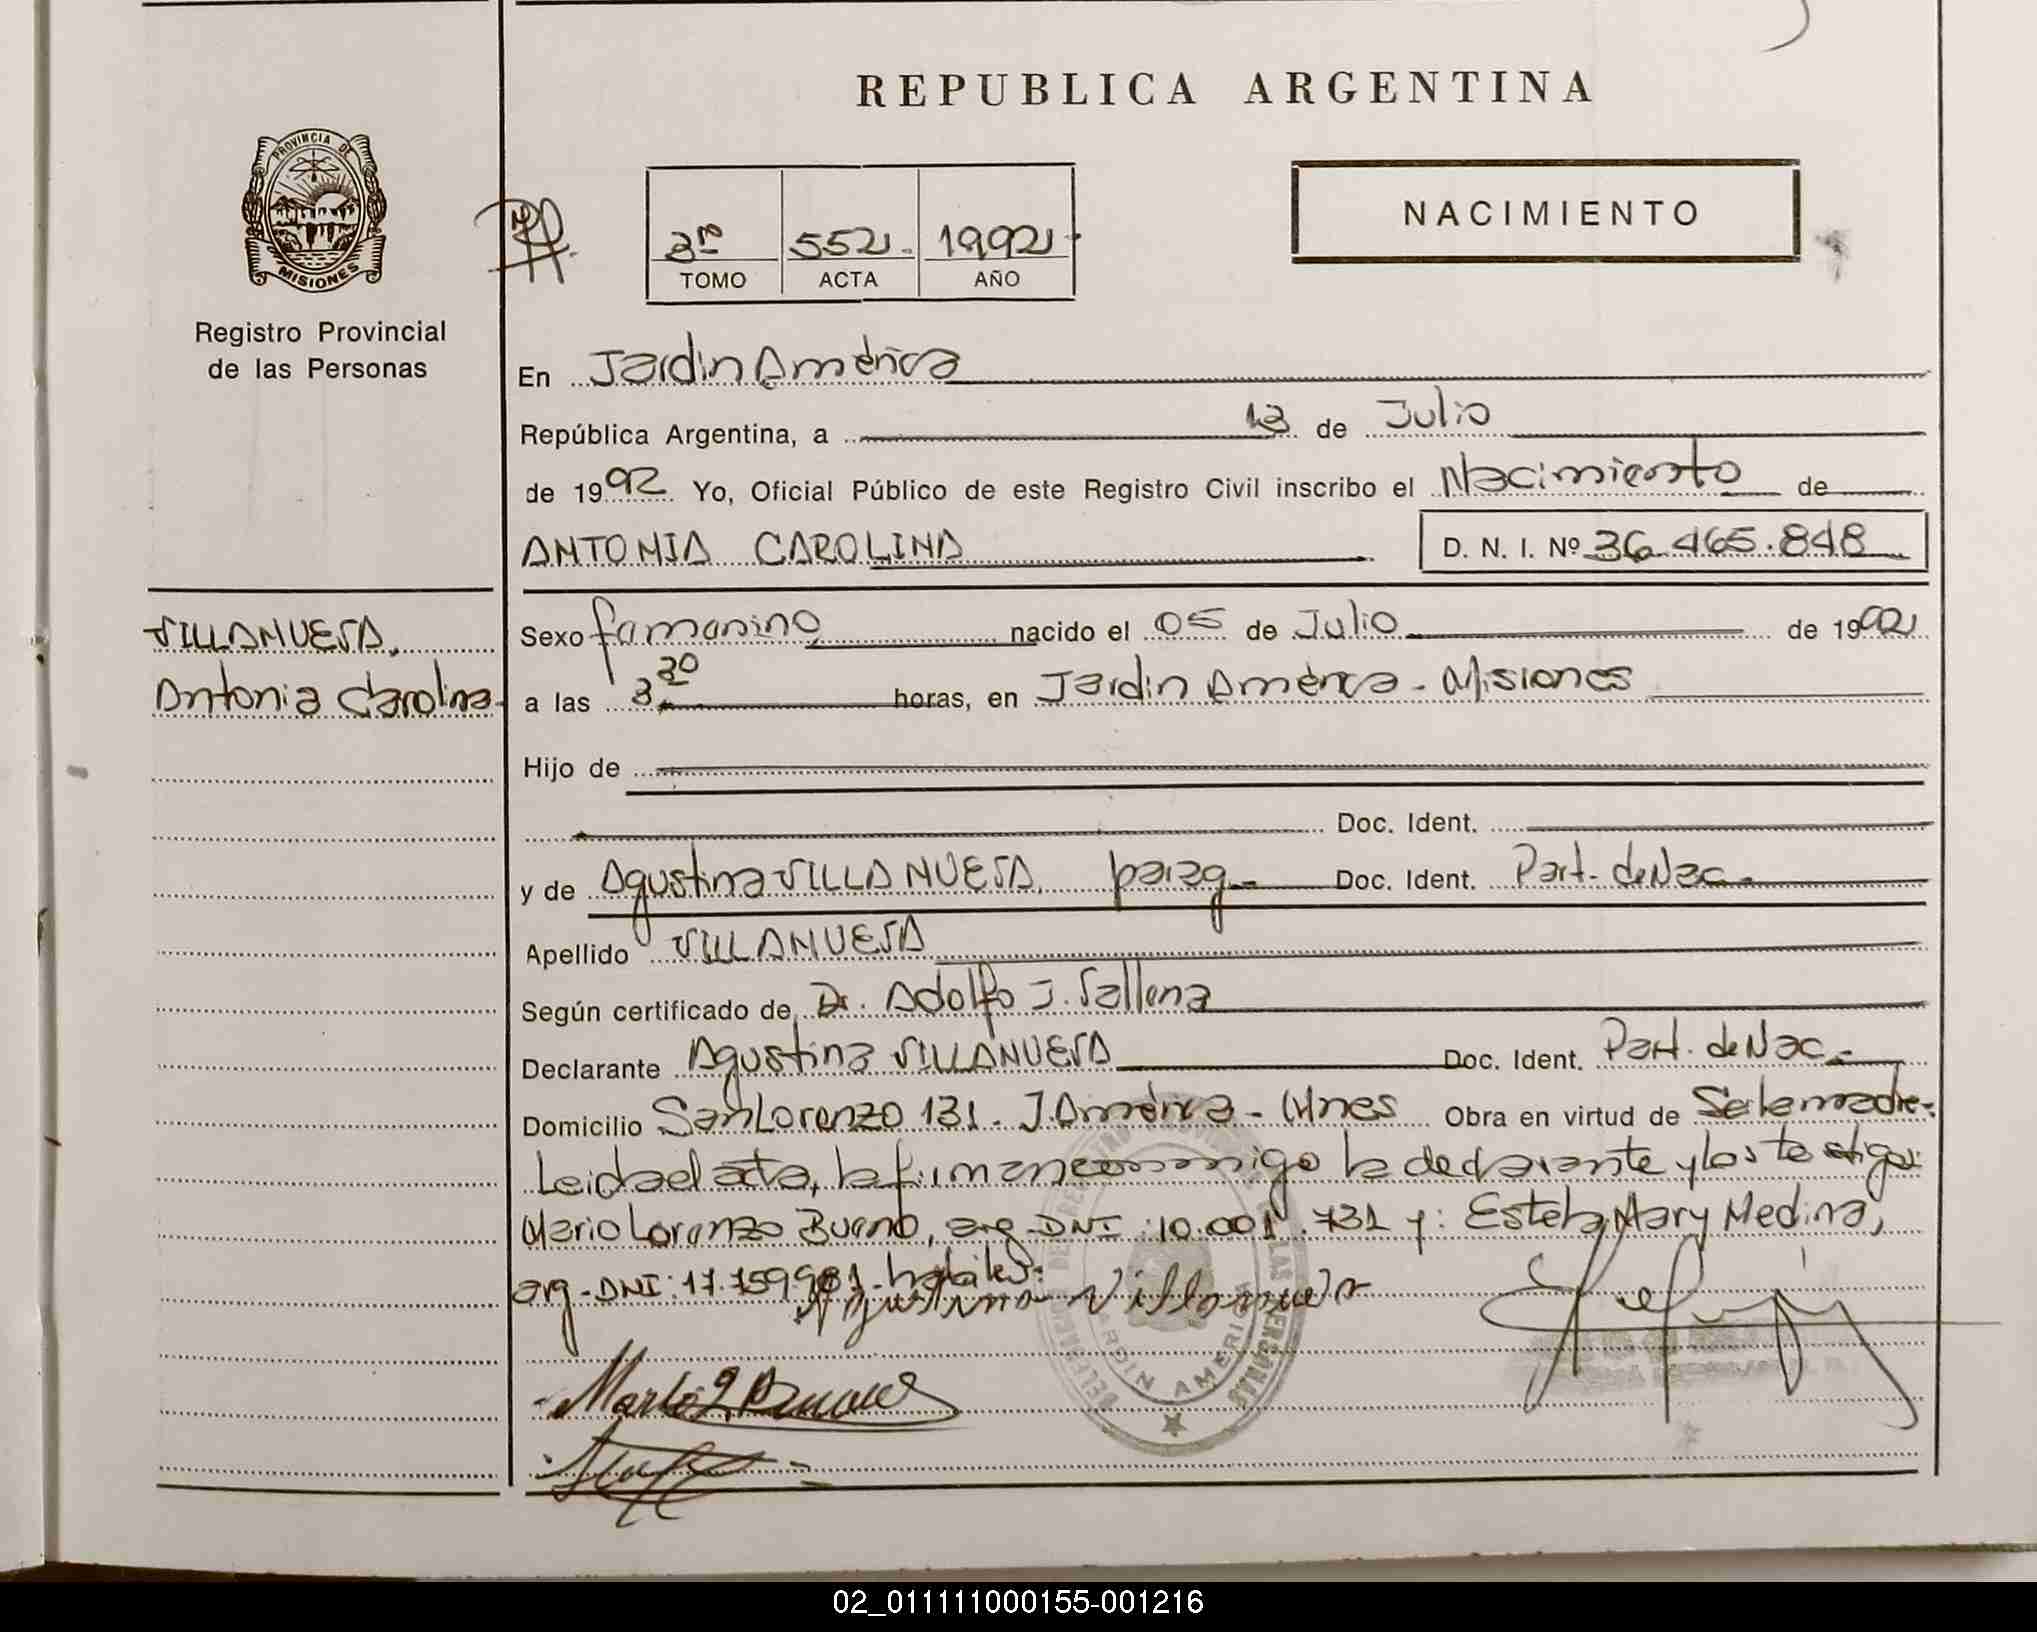 REPUBLICA ARGENTINA
PROVINCIA DE
MISIONES
Registro Provincial
de las Personas
3º 552. 1992
TOMO ACTA AÑO
NACIMIENTO
En Jardin América
República Argentina, a 13 de Julio
de 1992 Yo, Oficial Público de este Registro Civil inscribo el Nacimiento de
ANTONIA CAROLINA D. N. I. Nº 36.465.848
VILLANUEVA,
Antonia Carolina.
Sexo femenino nacido el 05 de Julio de 1992
a las 3 30 horas, en Jardin América - Misiones
Hijo de
Doc. Ident.
y de Agustina VILLANUEVA, parag. Doc. Ident. Part. de Nac.
Apellido VILLANUEVA
Según certificado de Dr. Adolfo J.
Declarante Agustina VILLANUEVA Doc. Ident. Part. de Nac.
Domicilio San Lorenzo 131. J. América - Mnes Obra en virtud de Ser la madre.
Leida el acta, la firman conmigo la declarante y los testigos:
Mario Lorenzo Bueno, arg. DNI: 10.001.731 y: Estela Mary Medina,
arg. DNI: 17. habiles.
Agustina Villanueva
JARDIN AMERICA
02_011111000155-001216